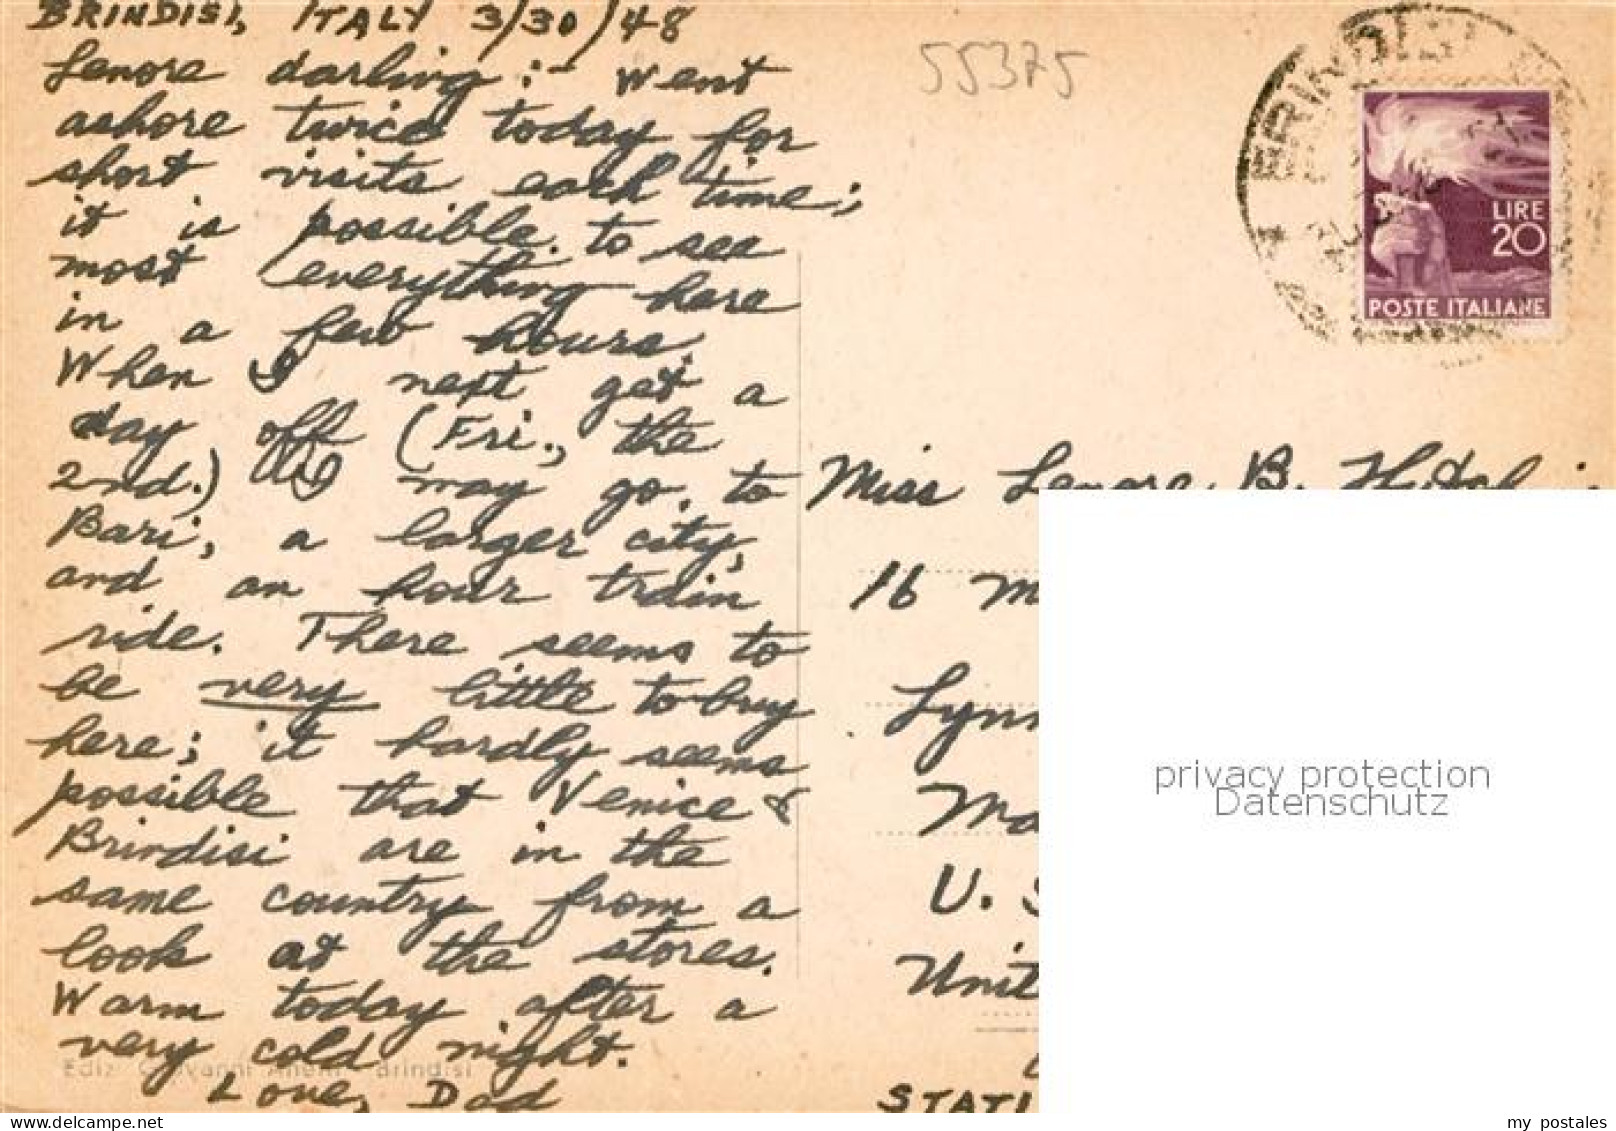 BRINDISI, ITALY 3/30/48
Lenore darling:- Went
ashore twice today for
short visits each time;
it is possible to see
most everything here
in a few hours.
When I next get a
day off (Fri., the
2nd.) I may go to
Bari, a larger city,
and an hour train
ride. There seems to
be very little to buy
here; it hardly seems
possible that Venice &
Brindisi are in the
same country from a
look at the stores.
Warm today after a
very cold night.
Love, Dad
Ediz. Giovanni Brindisi
55375
BRINDISI
LIRE
20
POSTE ITALIANE
Miss Lenore B.
16
Lynn
U. S
Unit
STATI
privacy protection
Datenschutz
my postales
www.delcampe.net